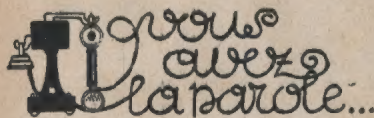 vous
avez
la parole...